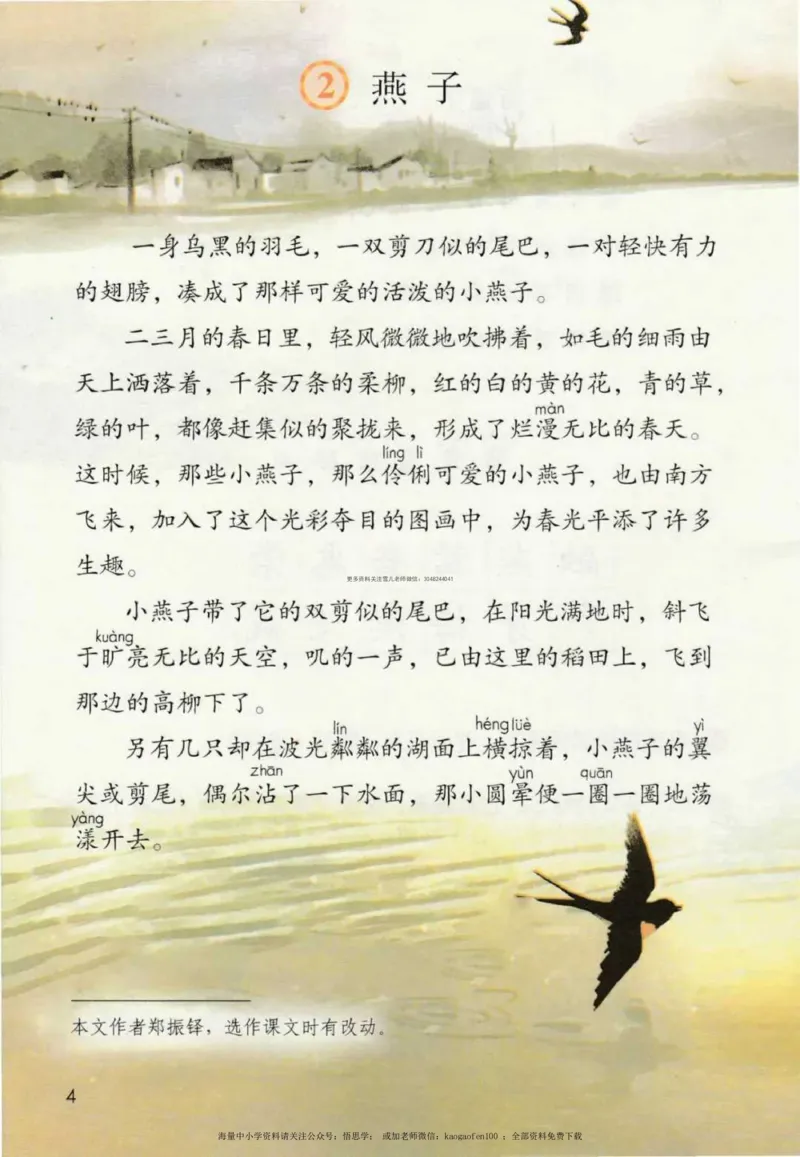 2 燕子
一身乌黑的羽毛，一双剪刀似的尾巴，一对轻快有力
的翅膀，凑成了那样可爱的活泼的小燕子。
二三月的春日里，轻风微微地吹拂着，如毛的细雨由
天上洒落着，千条万条的柔柳，红的白的黄的花，青的草，
màn
绿的叶，都像赶集似的聚拢来，形成了烂漫无比的春天。
líng lì
这时候，那些小燕子，那么伶俐可爱的小燕子，也由南方
飞来，加入了这个光彩夺目的图画中，为春光平添了许多
生趣。
更多资料关注雪儿老师微信：3046244041
小燕子带了它的双剪似的尾巴，在阳光满地时，斜飞
kuàng
于旷亮无比的天空，叽的一声，已由这里的稻田上，飞到
那边的高柳下了。
lín héng lüè yì
另有几只却在波光粼粼的湖面上横掠着，小燕子的翼
zhān yùn quān
尖或剪尾，偶尔沾了一下水面，那小圆晕便一圈一圈地荡
yàng
漾开去。
本文作者郑振铎，选作课文时有改动。
4
海量中小学资料请关注公众号：悟思学； 或加老师微信：kaogaofen100 ；全部资料免费下载